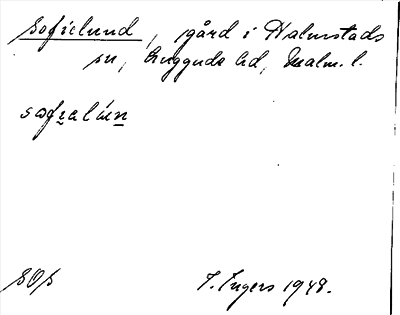 Sofielund, gård i Halmstads
sn, Luggude hd, Malm. l.
sofialún
SOS
I. Ingers 1948.